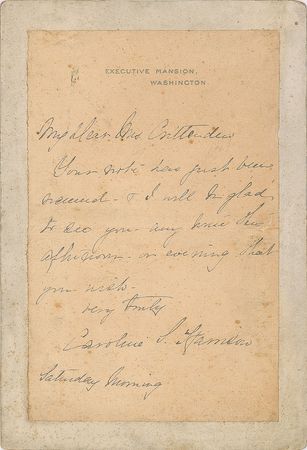 EXECUTIVE MANSION,
WASHINGTON
My dear Mrs Crittenden
Your note has just been
received - & I will be glad
to see you any time this
afternoon - or evening that
you wish -
Very truly
Caroline S. Harrison
Saturday Morning